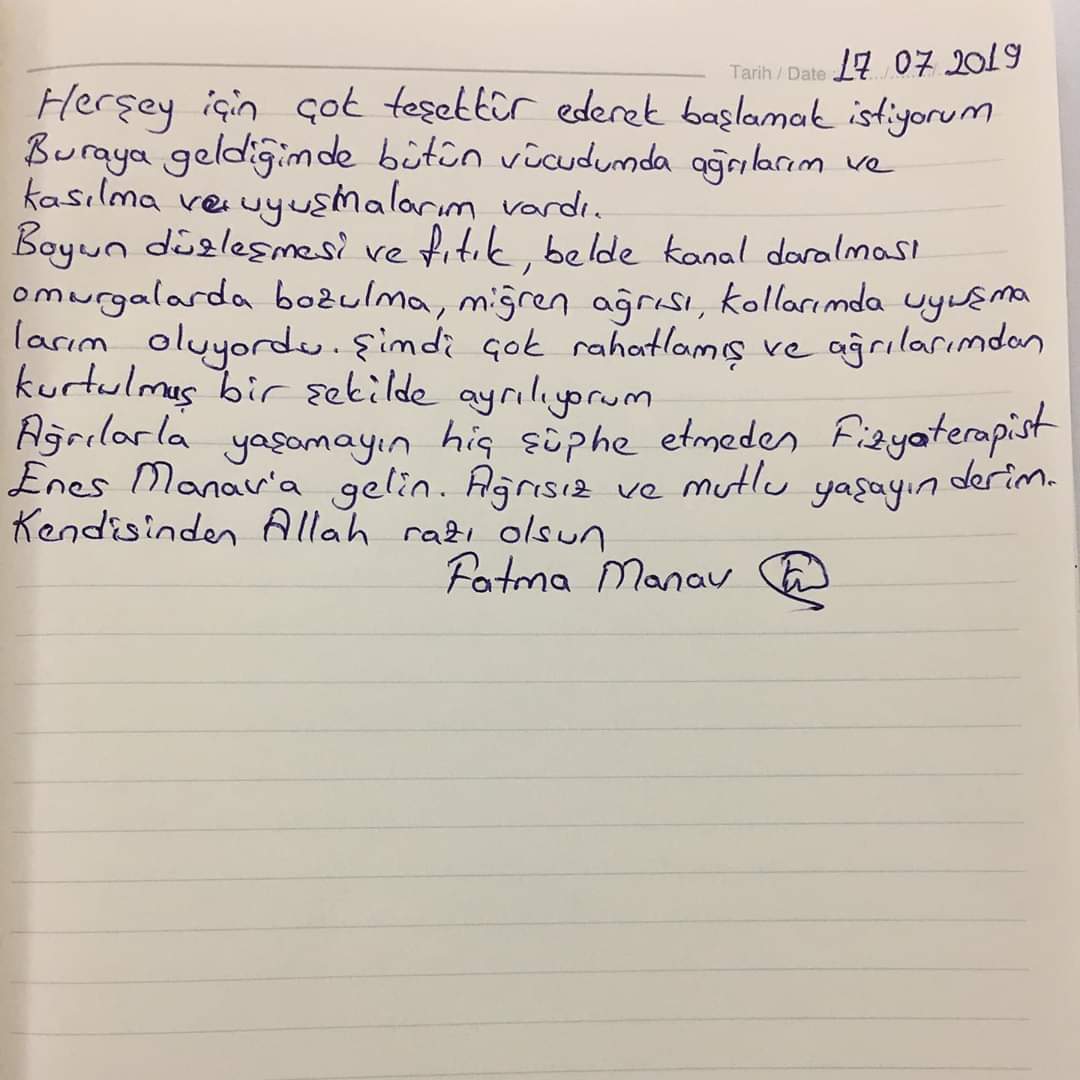 Tarih / Date 17 / 07 / 2019
Herşey için çok teşekkür ederek başlamak istiyorum
Buraya geldiğimde bütün vücudumda ağrılarım ve
kasılma ve uyuşmalarım vardı.
Boyun düzleşmesi ve fıtık, belde kanal daralması
omurgalarda bozulma, miğren ağrısı, kollarımda uyuşma
larım oluyordu. şimdi çok rahatlamış ve ağrılarımdan
kurtulmuş bir şekilde ayrılıyorum
Ağrılarla yaşamayın hiç şüphe etmeden Fizyoterapist
Enes Manav'a gelin. Ağrısız ve mutlu yaşayın derim.
Kendisinden Allah razı olsun
Fatma Manav